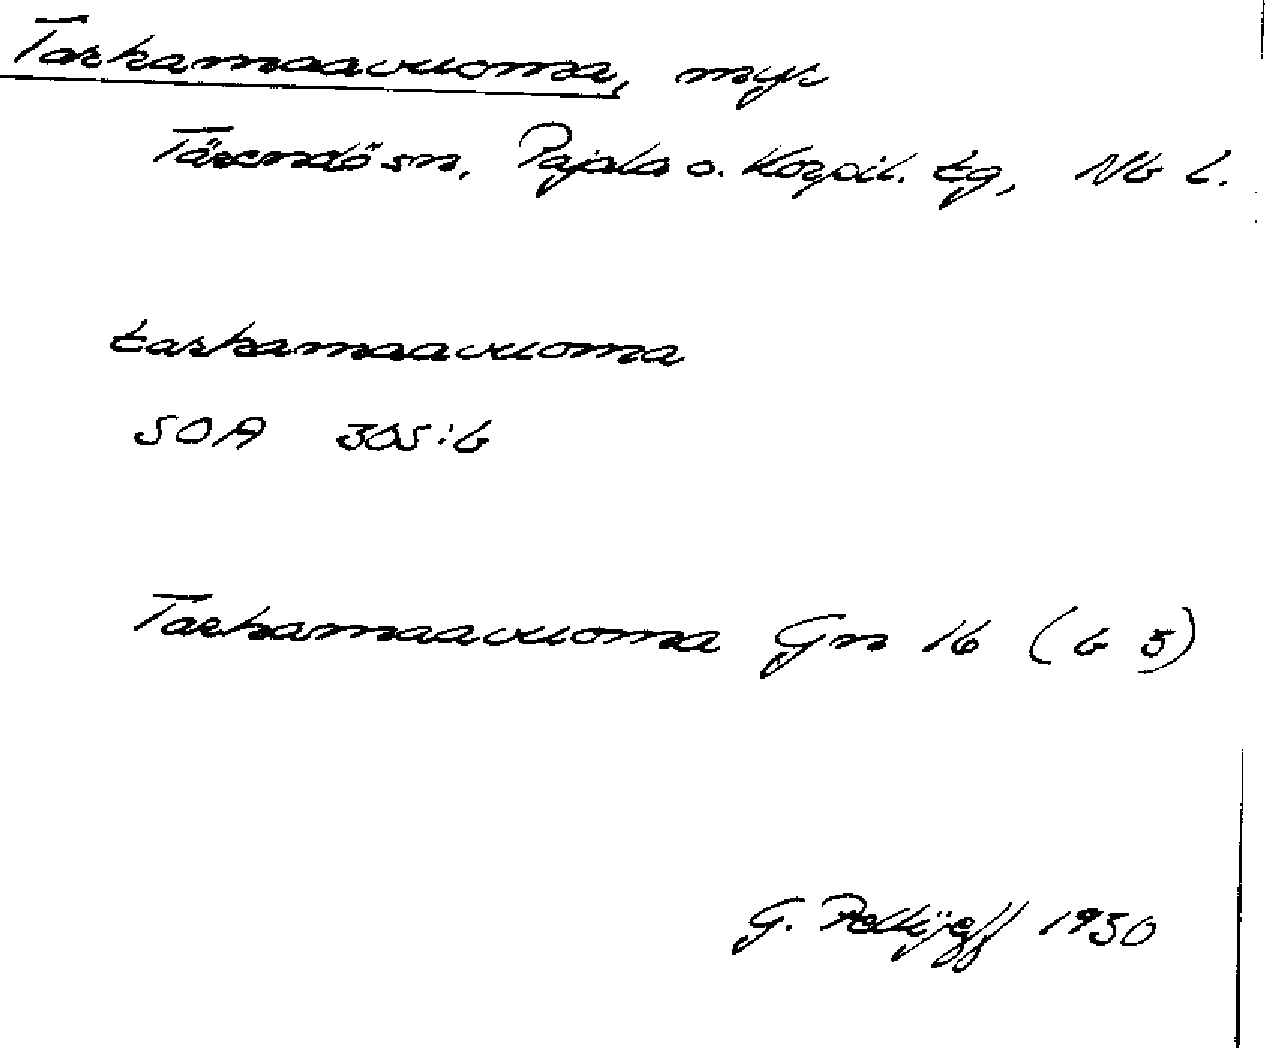 Tarkamaavuoma, myr
Tärendö sn, Pajala o. Korpil. tg, Nb l.
tarkamaavuoma
SOA 305:6
Tarkamaavuoma Gn 16 (b 5)
G. Pellijeff 1950